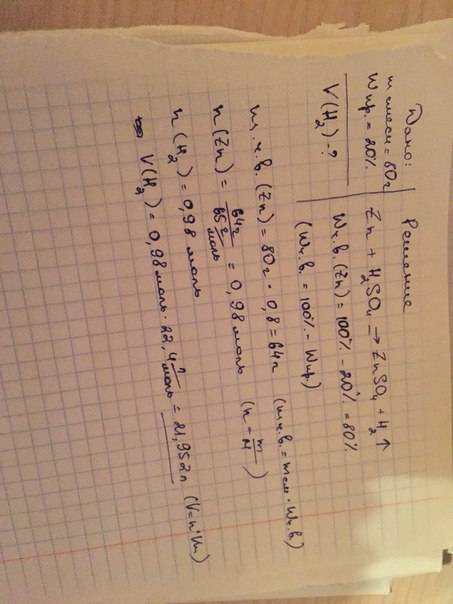 Дано: Решение
m смеси = 80г Zn + H₂SO₄ → ZnSO₄ + H₂↑
Wпр. = 20% Wч.в.(Zn) = 100% - 20% = 80%
V(H₂) - ? (Wч.в. = 100% - Wпр.)
mч.в.(Zn) = 80г · 0,8 = 64г (mч.в. = mсм · Wч.в.)
n(Zn) = 64г / 65 г/моль = 0,98 моль (n = m/M)
n(H₂) = 0,98 моль
V(H₂) = 0,98 моль · 22,4 л/моль = 21,952л (V = n·Vm)